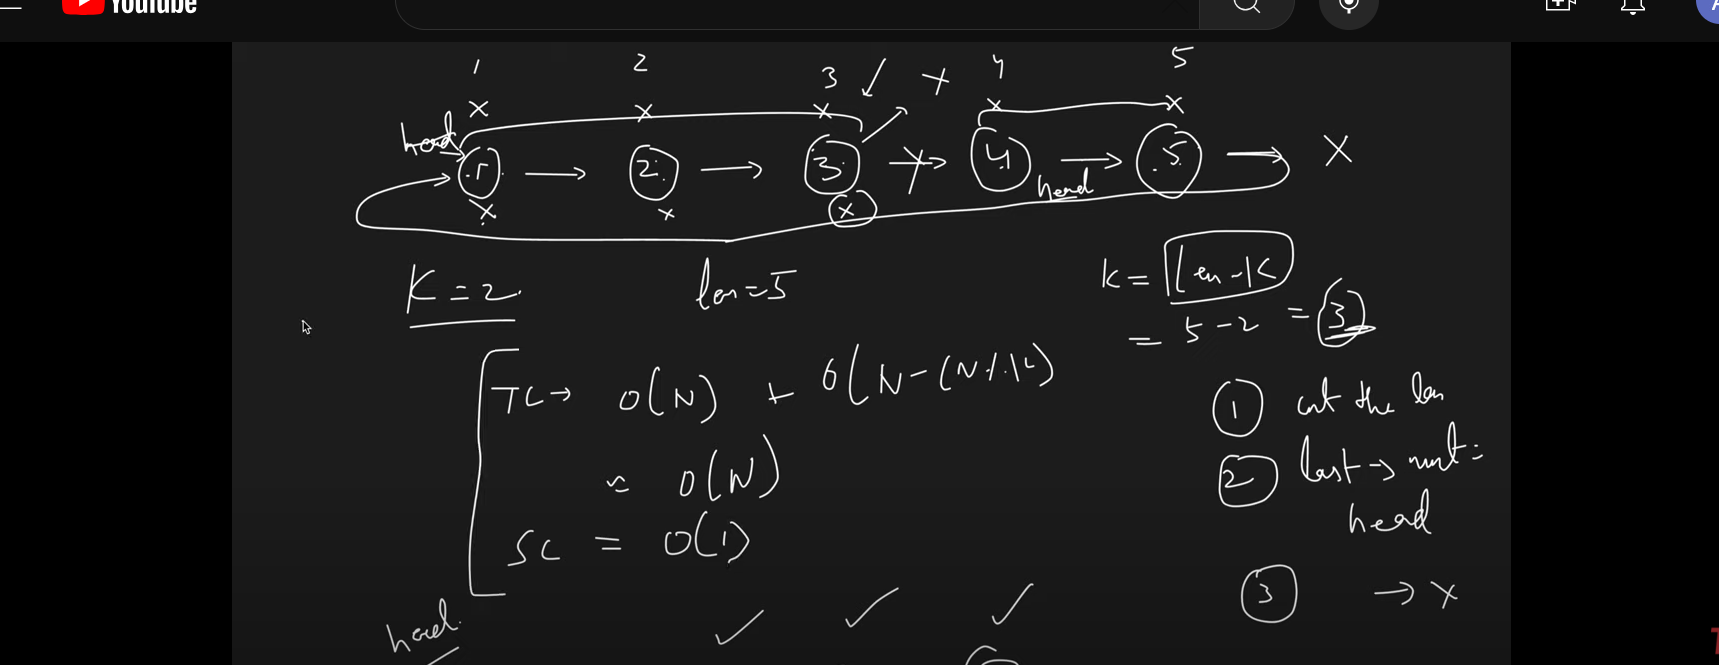 YouTube
1 2 3 4 5
x x x x x
head
1 → 2 → 3 → 4 → 5 → X
head
x x x
K = 2
len = 5
k = len - K
= 5 - 2 = 3
TC → O(N) + O(N - (N % K)
≈ O(N)
SC = O(1)
1 cnt the len
2 last → next =
head
3 → X
head